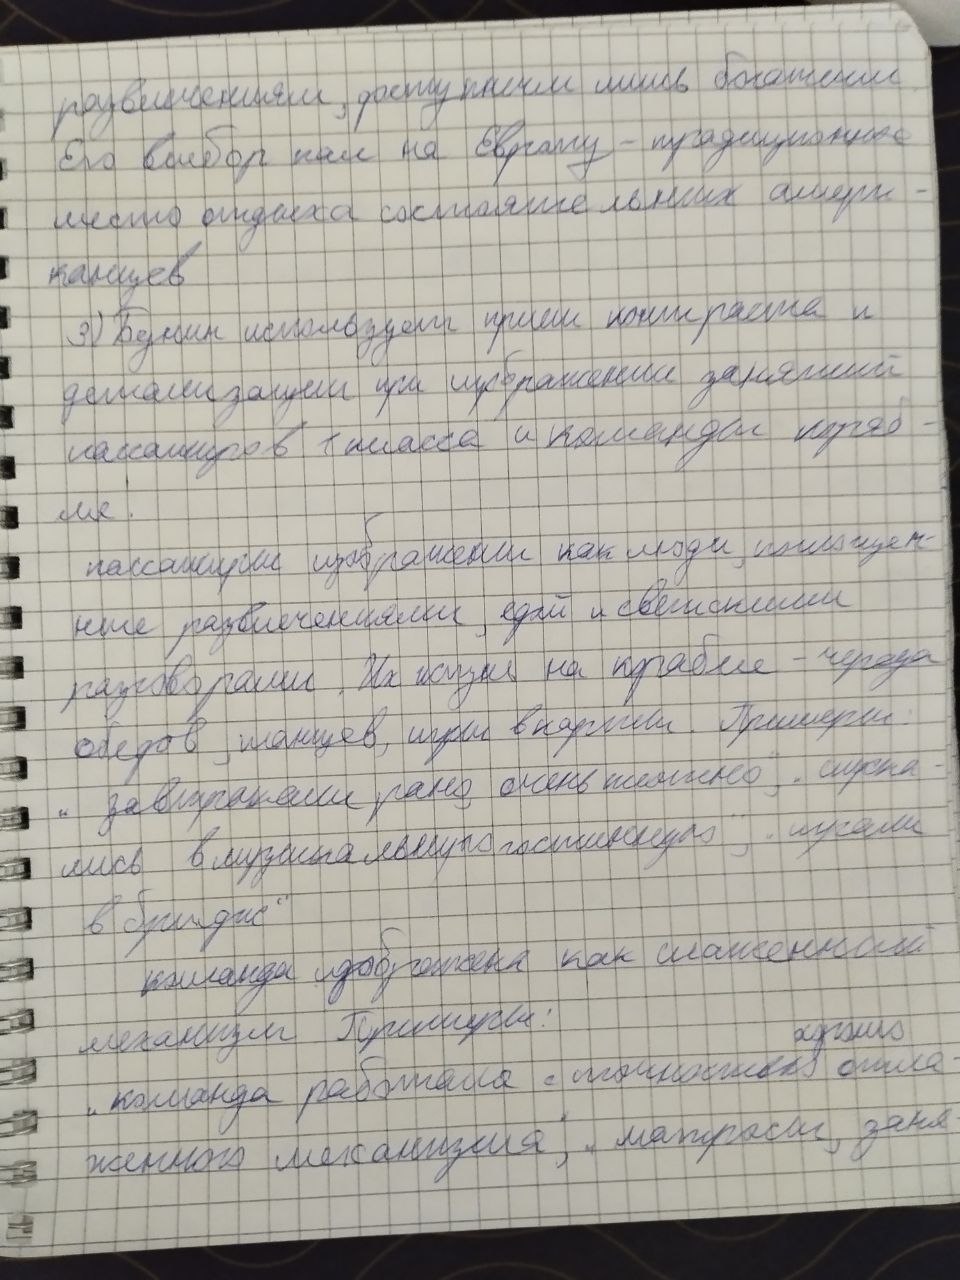 развлечениям, доступным лишь богатым.
Его выбор пал на Европу – традиционное
место отдыха состоятельных амери-
канцев
3) Бунин использует прием контраста и
детализации при изображении занятий
пассажиров 1 класса и команды кораб-
ля.
пассажиры изображены как люди, поглощен-
ные развлечениями, едой и светскими
разговорами. Их жизнь на корабле – череда
обедов, танцев, игры в карты. Примеры:
„завтракали рано, очень плотно", „спуска-
лись в музыкальную гостинную", „играли
в бридж"
команда изображена как слаженный
механизм Примеры:
хорошо
„команда работала с точностью отла-
женного механизма", „матросы, заня-